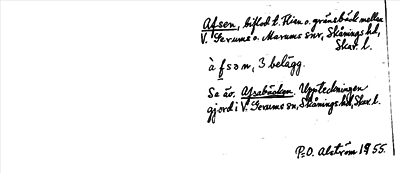 Afsen, biflod t. Flien o. gränsbäck mellan
V. Gerums o. Marums snr, Skånings hd,
Skar. l.
à fsən, 3 belägg.
Se äv. Afsabäcken. Uppteckningen
gjord i V. Gerums sn, Skånings hd, Skar. l.
P.O. Alström 1955.